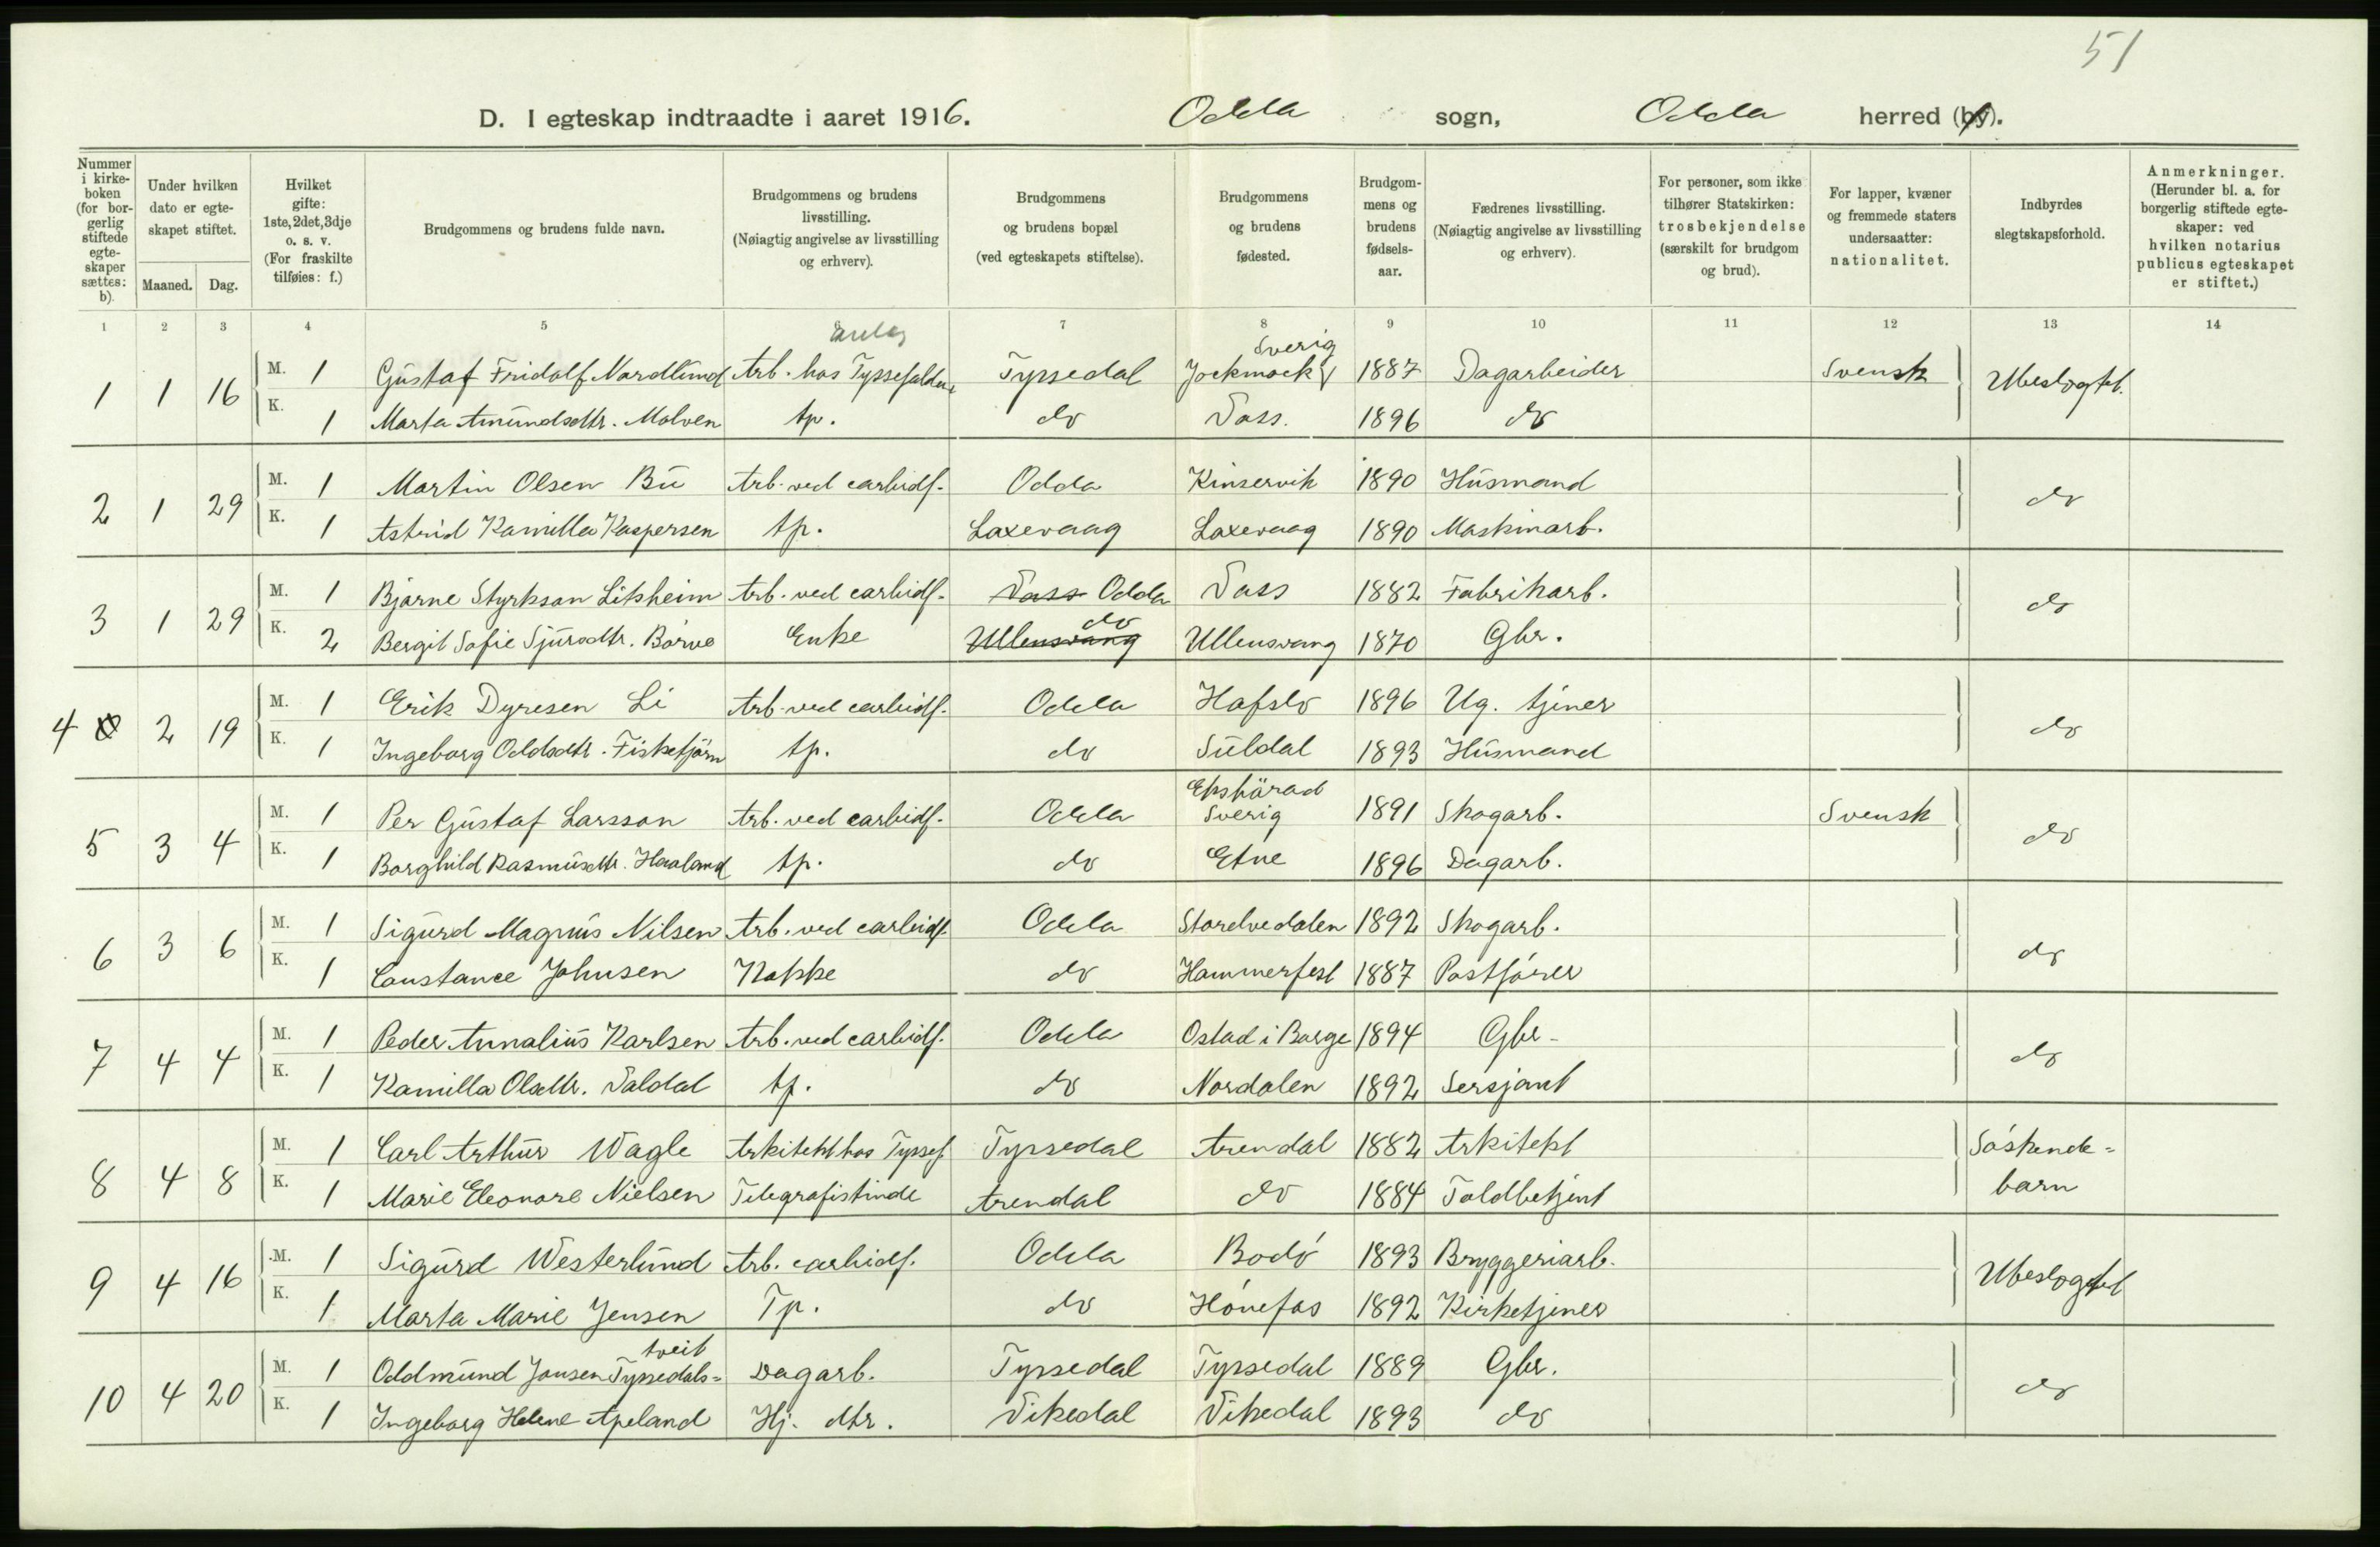 51
D. I egteskap indtraadte i aaret 1916. Odda sogn, Odda herred (by).
Nummer i kirkeboken (for borgerlig stiftede egteskaper sættes: b).
Under hvilken dato er egteskapet stiftet.
Maaned. Dag.
Hvilket gifte: 1ste, 2det, 3dje o. s. v. (For fraskilte tilføies: f.)
Brudgommens og brudens fulde navn.
Brudgommens og brudens livsstilling. (Nøiagtig angivelse av livsstilling og erhverv).
Brudgommens og brudens bopæl (ved egteskapets stiftelse).
Brudgommens og brudens fødested.
Brudgommens og brudens fødselsaar.
Fædrenes livsstilling. (Nøiagtig angivelse av livsstilling og erhverv).
For personer, som ikke tilhører Statskirken: trosbekjendelse (særskilt for brudgom og brud).
For lapper, kvæner og fremmede staters undersaatter: nationalitet.
Indbyrdes slegtskapsforhold.
Anmerkninger. (Herunder bl. a. for borgerlig stiftede egteskaper: ved hvilken notarius publicus egteskapet er stiftet.)
1 2 3 4 5 6 7 8 9 10 11 12 13 14
anlæg Sverig
1 1 16 M. 1 Gustaf Fridolf Nordlund Arb. hos Tyssefaldene Tyssedal Jockmock 1887 Dagarbeider Svensk Ubeslogtet.
K. 1 Marta Amundsdtr. Molven tp. do Voss. 1896 do
2 1 29 M. 1 Martin Olsen Bu Arb. ved carbidf. Odda Kinservik 1890 Husmand do
K. 1 Astrid Kamilla Kaspersen tp. Laxevaag Laxevaag 1890 Maskinarb.
3 1 29 M. 1 Bjarne Styrkson Litsheim Arb. ved carbidf. Voss Odda Voss 1882 Fabrikarb. do
K. 2 Bergit Sofie Sjursdtr. Börve Enke Ullensvang do Ullensvang 1870 Gbr.
4 2 19 M. 1 Erik Dyresen Li Arb. ved carbidf. Odda Hafslo 1896 Ug. tjener do
K. 1 Ingeborg Oddsdtr. Fisketjörn tp. do Suldal 1893 Husmand
5 3 4 M. 1 Per Gustaf Larsson Arb. ved carbidf. Odda Ekshärad Sverig 1891 Skogarb. Svensk do
K. 1 Borghild Rasmusdtr. Haaland tp. do Etne 1896 Dagarb.
6 3 6 M. 1 Sigurd Magnus Nilsen Arb. ved carbidf. Odda Storelvedalen 1892 Skogarb. do
K. 1 Constance Johnsen Kokke do Hammerfest 1887 Postförer
7 4 4 M. 1 Peder Annalius Karlsen Arb. ved carbidf. Odda Ostad i Borge 1894 Gbr. do
K. 1 Kamilla Oladtr. Valdal tp. do Nordalen 1892 Sersjant
8 4 8 M. 1 Carl Arthur Wagle Arkitekt hos Tyssef. Tyssedal Arendal 1882 Arkitekt Söskende=
K. 1 Marie Eleonore Nielsen Telegrafistinde Arendal do 1884 Toldbetjent barn
9 4 16 M. 1 Sigurd Westerlund Arb. carbidf. Odda Bodö 1893 Bryggeriarb. Ubeslogtet
K. 1 Marta Marie Jensen Tp. do Hönefos 1892 Kirketjener
tveit
10 4 20 M. 1 Oddmund Jonsen Tyssedals= Dagarb. Tyssedal Tyssedal 1889 Gbr. do
K. 1 Ingeborg Helene Apeland Hj. dtr. Vikedal Vikedal 1893 do